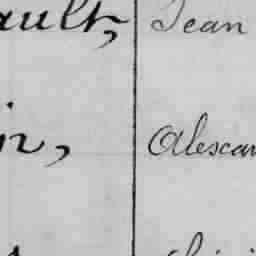 ault, Jean
in, Alexan